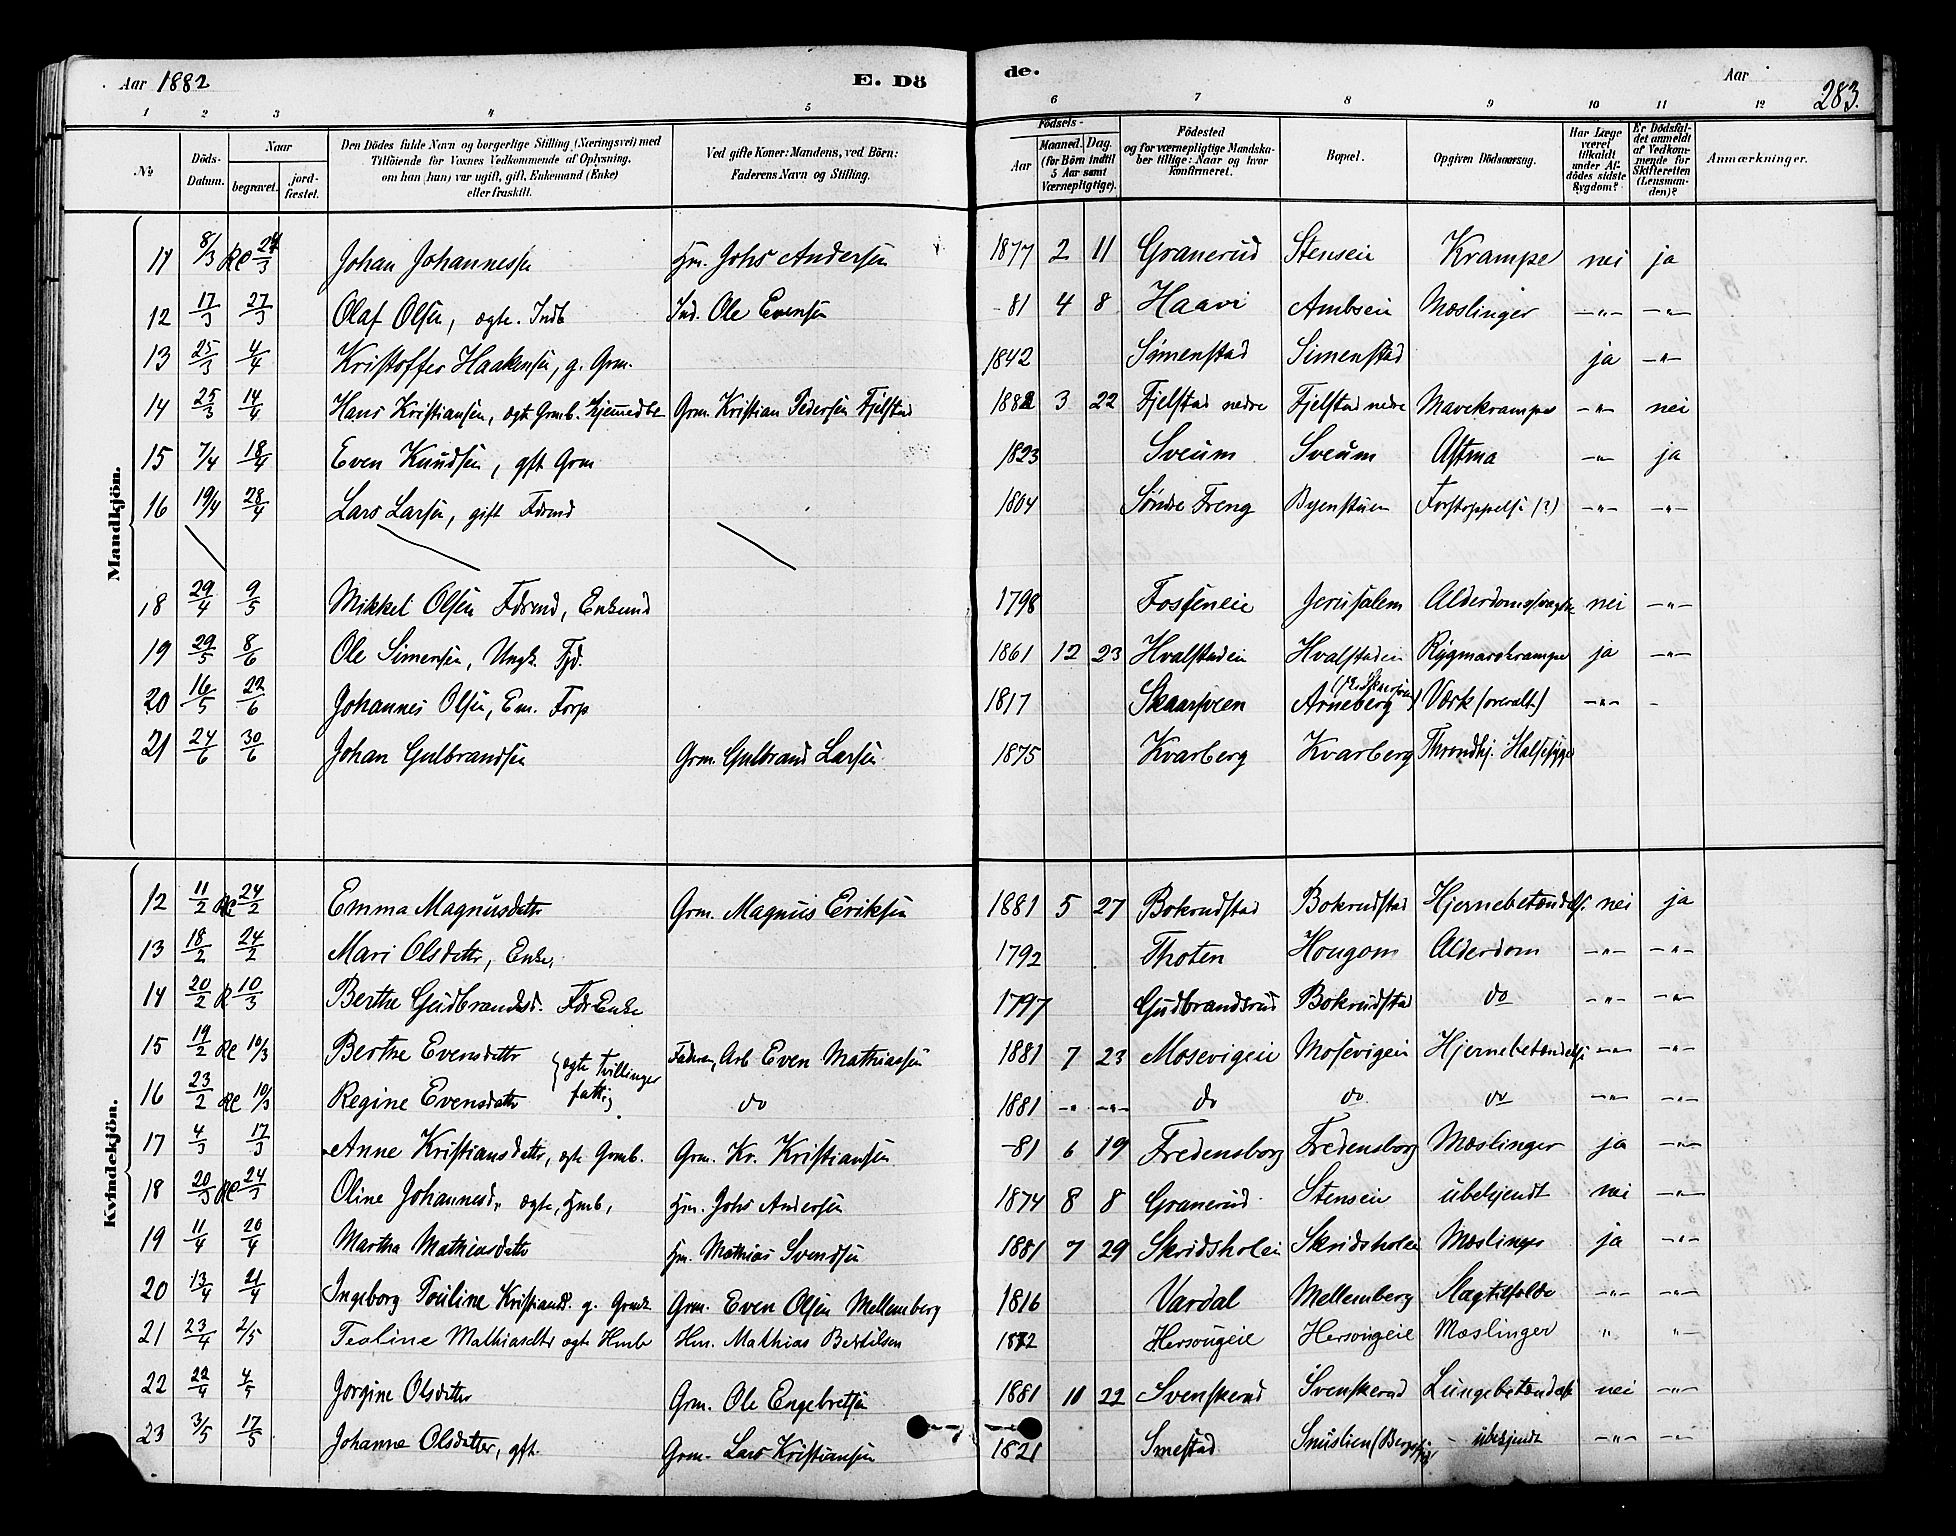 Aar 1882 E. Dö de. Aar 283.
1 2 3 4 5 6 7 8 9 10 11 12
№ Döds-Datum. Naar begravet. jord-fæstet. Den Dödes fulde Navn og borgerlige Stilling (Næringsvei) med Tilföiende for Voxnes Vedkommende af Oplysning, om han (hun) var ugift, gift, Enkemand (Enke) eller fraskilt. Ved gifte Koner: Mandens, ved Börn: Faderens Navn og Stilling. Födsels- Aar Maaned. Dag. (for Börn indtil 5 Aar samt Værnepligtige). Födested og for værnepligtige Mandskaber tillige: Naar og hvor konfirmeret. Bopæl. Opgiven Dödsaarsag. Har Læge været tilkaldt under Afdödes sidste Sygdom? Er Dödsfaldet anmeldt af Vedkommende for Skifteretten (Lensmanden)? Anmærkninger.
Mandkjön.
11 8/3 24/3 Johan Johannessen Hm. Johs Andersen 1877 2 11 Granerud Stenseie Krampe nei ja
12 17/3 27/3 Olaf Olsen, ægte. Indb Ind. Ole Evensen -81 4 8 Haavi Ambseie Mæslinger -"- -"-
13 25/3 4/4 Kristoffer Haakensen, g. Grm. 1842 Simenstad Simenstad ja -"-
14 25/3 14/4 Hans Kristiansen, ægte Grmb. Hjemmedbt Grm. Kristian Pedersen Fjelstad 1882 3 22 Fjelstad nedre Fjelstad nedre Mavekrampe -"- nei
15 7/4 18/4 Even Knudsen, gft Grm 1823 Sveum Sveum Astma -"- ja
16 19/4 28/4 Lars Larsen, gift Fdrmd 1804 Søndre Freng Byenstuen Forstoppelse (?) -"- -"-
18 29/4 9/5 Mikkel Olsen Fdrmd, Enkemd 1798 Fosseneie Jerusalem Alderdomssvaghed nei -"-
19 29/5 8/6 Ole Simensen, Ungk. 1861 12 23 Hvalstadeie Hvalstadeie Rygmarvskrampe ja -"-
20 16/5 22/6 Johannes Olsen, Em. Forp 1817 Skaarsveen Arneberg Værk (overalt) -"- -
21 24/6 30/6 Johan Gulbrandsen Grm. Gulbrand Larsen 1875 Kvarberg Kvarberg Throndhj. Halsesyge
Kvindekjön.
12 11/2 24/2 Emma Magnusdatter Grm. Magnus Eriksen 1881 5 27 Bokrudstad Bokrudstad Hjernebetændelse nei ja
13 18/2 24/2 Mari Olsdatter, Enke. 1792 Thoten Hougom Alderdom -"- -"-
14 20/2 10/3 Berthe Gudbrandsd. FdrEnke 1797 Gudbrandsrud Bokrudstad do -"- -"-
15 19/2 10/3 Berthe Evensdatter {ægte Tvillinger Faderen, Arb Even Mathiassen 1881 7 23 Mosevigeie Mosevigeie Hjernebetændelse -"- -"-
16 23/2 10/3 Regine Evensdatter fattig do 1881 -"- -"- do do do -"- -"-
17 4/3 17/3 Anne Kristiansdatter, ægte Grmb. Grm. Kr. Kristiansen -81 6 19 Fredensborg Fredensborg Mæslinger ja -"-
18 20/3 24/3 Oline Johannesd. ægte, Hmb, Hm. Johs Andersen 1874 8 8 Granerud Stenseie ubekjendt nei -"-
19 11/4 20/4 Martha Mathiasdatter Hm. Mathias Svendsen 1881 7 29 Skridsholeie Skridsholeie Mæslinger ja -"-
20 13/4 21/4 Ingeborg Pouline Kristiansd. g. Grmk Grm. Even Olsen Mellemberg 1816 Vardal Mellemberg Slagtilfælde -"- -"-
21 23/4 2/5 Teoline Mathiasdtr ægte Hmb Hm. Mathias Bertilsen 1872 Hersougeie Hersougeie Mæslinger " -"-
22 22/4 4/5 Jorgine Olsdatter Grm. Ole Engebretsen 1881 10 22 Svenskerud Svenskerud Lungebetændelse nei -"-
23 3/5 17/5 Johanne Olsdatter, gft. Grm. Lars Kristiansen 1821 Smestad Snuslien ubekjendt -"- -"-